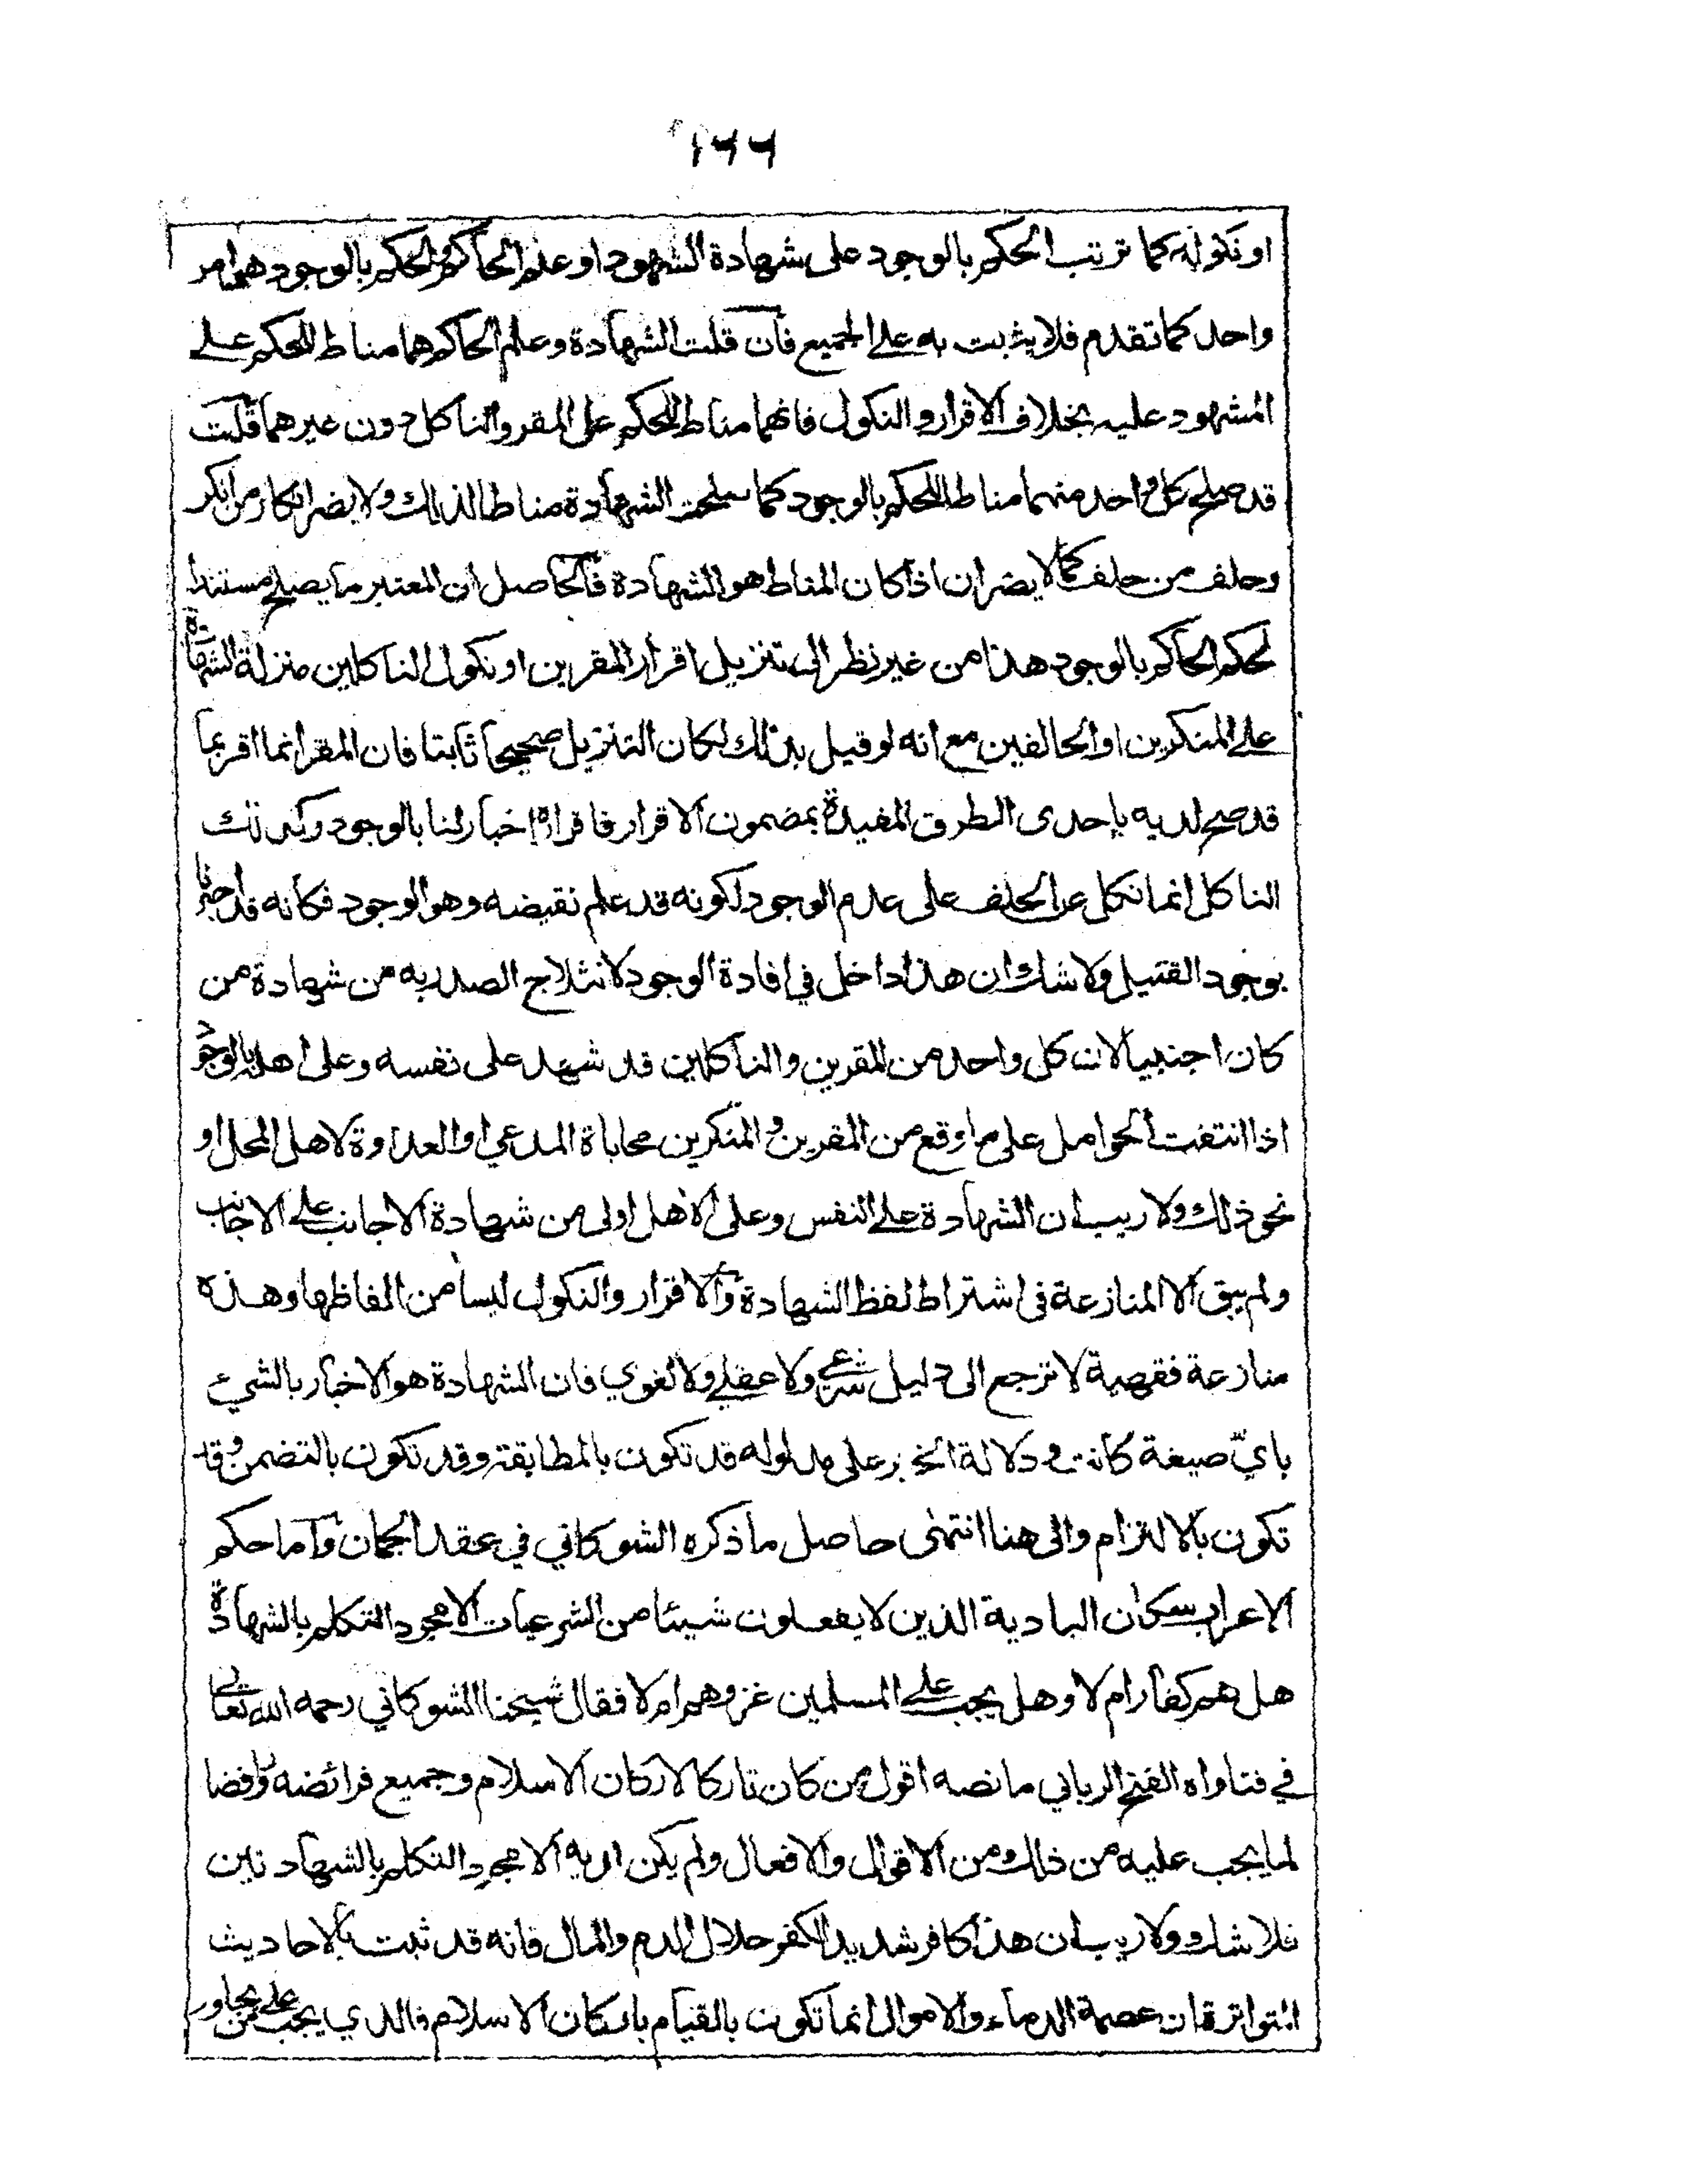 ١٦٦
او نكوله كما ترتب الحكم بالوجود على شهادة الشهود او علم الحاكم والحكم بالوجود هو امر
واحد كما تقدم فلا يثبت به على الجميع فان قلت الشهادة وعلم الحاكم هما مناط للحكم على
المشهود عليه بخلاف الاقرار والنكول فانهما مناط للحكم على المقر والناكل دون غيرهما قلت
قد صلح كل واحد منهما مناطا للحكم بالوجود كما صلحت الشهادة مناطا لذلك ولا يضر انكار من انكر
وحلف من حلف كما لا يضران اذا كان المناط هو الشهادة فالحاصل ان المعتبر ما يصلح مستندا
لحكم الحاكم بالوجود هذا من غير نظر الى تنزيل اقرار المقرين او نكول الناكلين منزلة الشهادة
على المنكرين او الحالفين مع انه لو قيل بذلك لكان التنزيل صحيحا ثابتا فان المقر انما اقر بما
قد صح لديه بإحدى الطرق المفيدة بمضمون الاقرار فاقراره إخبار لنا بالوجود وكذلك
الناكل انما نكل عن الحلف على عدم الوجود لكونه قد علم نقيضه وهو الوجود فكانه قد اخبرنا
بوجود القتيل ولا شك ان هذا داخل في افادة الوجود لانثلاج الصدر به من شهادة من
كان اجنبيا لان كل واحد من المقرين والناكلين قد شهد على نفسه وعلى اهله بالوجود
اذا انتفت الحوامل على ما وقع من المقرين والمنكرين محاباة المدعي او العداوة لاهل المحل او
نحو ذلك ولا ريب ان الشهادة على النفس وعلى الاهل اولى من شهادة الاجانب على الاجانب
ولم يبق الا المنازعة في اشتراط لفظ الشهادة والاقرار والنكول ليسا من الفاظها وهذه
منازعة فقهية لا ترجع الى دليل شرعي ولا عقلي ولا لغوي فان الشهادة هو الاخبار بالشيء
بايّ صيغة كانت ودلالة الخبر على مدلوله قد تكون بالمطابقة وقد تكون بالتضمن وقد
تكون بالالتزام والى هنا انتهى حاصل ما ذكره الشوكاني في عقد الجمان وأما حكم
الاعراب سكان البادية الذين لا يفعلون شيئا من الشرعيات الا مجرد التكلم بالشهادة
هل هم كفار ام لا وهل يجب على المسلمين غزوهم ام لا فقال شيخنا الشوكاني رحمه الله تعالى
في فتاواه الفتح الرباني ما نصه اقول من كان تاركا لاركان الاسلام وجميع فرائضه ورافضا
لما يجب عليه من ذلك من الاقوال والافعال ولم يكن لديه الا مجرد التكلم بالشهادتين
فلا شك ولا ريب ان هذا كافر شديد الكفر حلال الدم والمال فانه قد ثبت بالاحاديث
المتواترة ان عصمة الدماء والاموال انما تكون بالقيام باركان الاسلام فالذي يجب على من يجاور